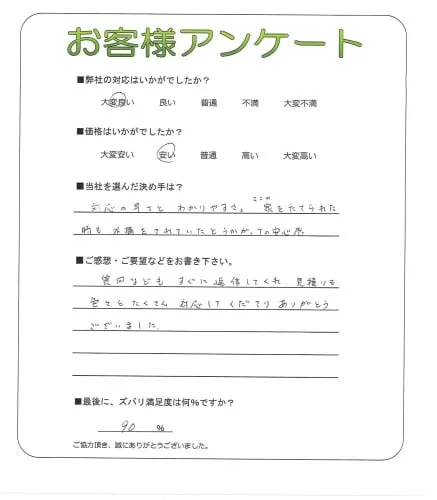 お客様アンケート
■弊社の対応はいかがでしたか?
大変良い 良い 普通 不満 大変不満
■価格はいかがでしたか?
大変安い 安い 普通 高い 大変高い
■当社を選んだ決め手は?
対応の早さと わかりやすさ。この 家をたてられた
時も 外構をされていたとうかがっての安心感
■ご感想・ご要望などをお書き下さい。
質問なども すぐに返信してくれ 見積りも
色々とたくさん 対応してくださり ありがとう
ございました
■最後に、ズバリ満足度は何%ですか?
90 %
ご協力頂き、誠にありがとうございました。